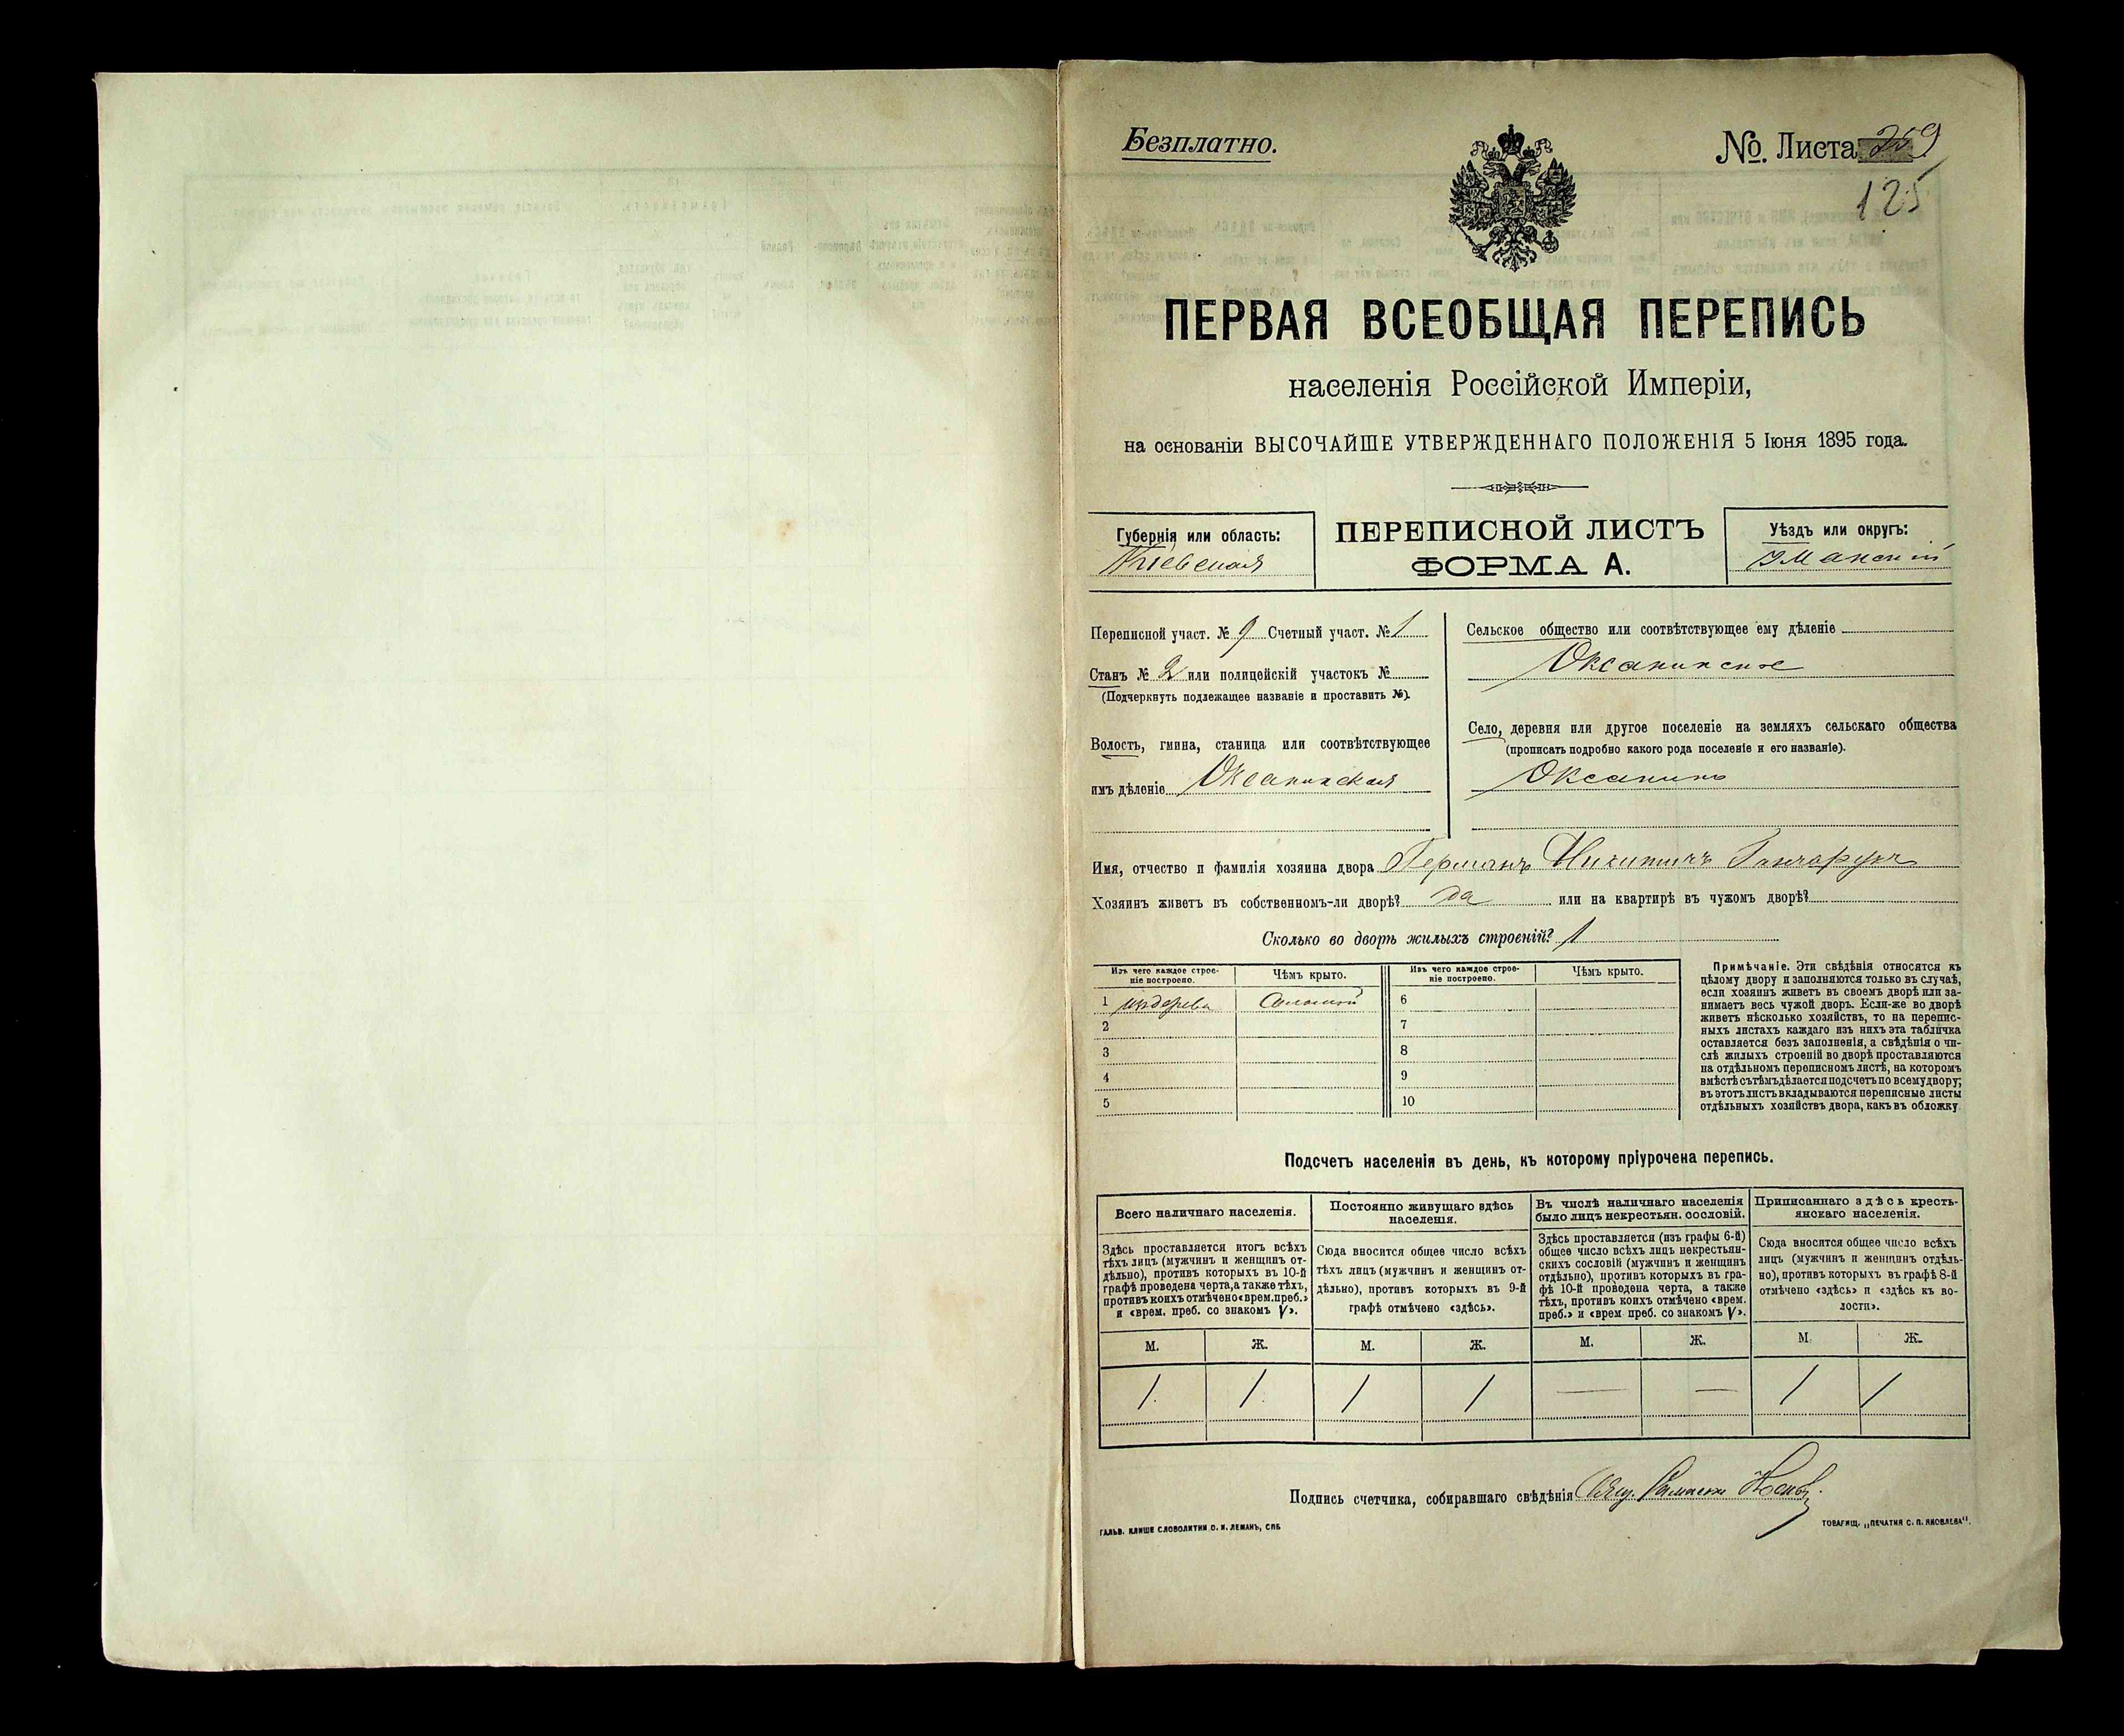 Безплатно.
№. Листа 259
125
ПЕРВАЯ ВСЕОБЩАЯ ПЕРЕПИСЬ
населенія Россійской Имперіи,
на основаніи ВЫСОЧАЙШЕ УТВЕРЖДЕННАГО ПОЛОЖЕНІЯ 5 Іюня 1895 года.
Губернія или область:
Кіевская
ПЕРЕПИСНОЙ ЛИСТЪ
ФОРМА А.
Уѣздъ или округъ:
Уманскій
Переписной участ. № 9 Счетный участ. № 1
Станъ № 2 или полицейскій участокъ №
(Подчеркнуть подлежащее названіе и проставить №).
Волость, гмина, станица или соотвѣтствующее
имъ дѣленіе Оксанинская
Сельское общество или соотвѣтствующее ему дѣленіе
Оксанинское
Село, деревня или другое поселеніе на земляхъ сельскаго общества
(прописать подробно какого рода поселеніе и его названіе).
Оксанино
Имя, отчество и фамилія хозяина двора Германъ Никитичъ Ганчарукъ
Хозяинъ живетъ въ собственномъ-ли дворѣ? да или на квартирѣ въ чужомъ дворѣ?
Сколько во дворѣ жилыхъ строеній? 1
Изъ чего каждое строе-
ніе построено.
Чѣмъ крыто.
Изъ чего каждое строе-
ніе построено.
Чѣмъ крыто.
1 изъ дерева Соломой 6
2 7
3 8
4 9
5 10
Примѣчаніе. Эти свѣдѣнія относятся къ
цѣлому двору и заполняются только въ случаѣ,
если хозяинъ живетъ въ своемъ дворѣ или за-
нимаетъ весь чужой дворъ. Если-же во дворѣ
живетъ нѣсколько хозяйствъ, то на перепис-
ныхъ листахъ каждаго изъ нихъ эта табличка
оставляется безъ заполненія, а свѣдѣнія о чи-
слѣ жилыхъ строеній во дворѣ проставляются
на отдѣльномъ переписномъ листѣ, на которомъ
вмѣстѣ съ тѣмъ дѣлается подсчетъ по всему двору;
въ этотъ листъ вкладываются переписные листы
отдѣльныхъ хозяйствъ двора, какъ въ обложку
Подсчетъ населенія въ день, къ которому пріурочена перепись.
Всего наличнаго населенія.
Здѣсь проставляется итогъ всѣхъ
тѣхъ лицъ (мужчинъ и женщинъ от-
дѣльно), противъ которыхъ въ 10-й
графѣ проведена черта, а также тѣхъ,
противъ коихъ отмѣчено «врем. преб.»
и «врем. преб. со знакомъ V».
Постоянно живущаго здѣсь
населенія.
Сюда вносится общее число всѣхъ
тѣхъ лицъ (мужчинъ и женщинъ от-
дѣльно), противъ которыхъ въ 9-й
графѣ отмѣчено «здѣсь».
Въ числѣ наличнаго населенія
было лицъ некрестьян. сословій.
Здѣсь проставляется (изъ графы 6-й)
общее число всѣхъ лицъ некрестьян-
скихъ сословій (мужчинъ и женщинъ
отдѣльно), противъ которыхъ въ гра-
фѣ 10-й проведена черта, а также
тѣхъ, противъ коихъ отмѣчено «врем.
преб.» и «врем преб. со знакомъ V».
Приписаннаго здѣсь кресть-
янскаго населенія.
Сюда вносится общее число всѣхъ
лицъ (мужчинъ и женщинъ отдѣль-
но), противъ которыхъ въ графѣ 8-й
отмѣчено «здѣсь» и «здѣсь къ во-
лости».
М. Ж. М. Ж. М. Ж. М. Ж.
1. 1. 1 1 — — 1 1
Подпись счетчика, собиравшаго свѣдѣнія
ГАЛЬВ. КЛИШЕ СЛОВОЛИТНИ О. И. ЛЕМАНЪ, СПБ
ТОВАРИЩ. „ПЕЧАТНЯ С. П. ЯКОВЛЕВА".